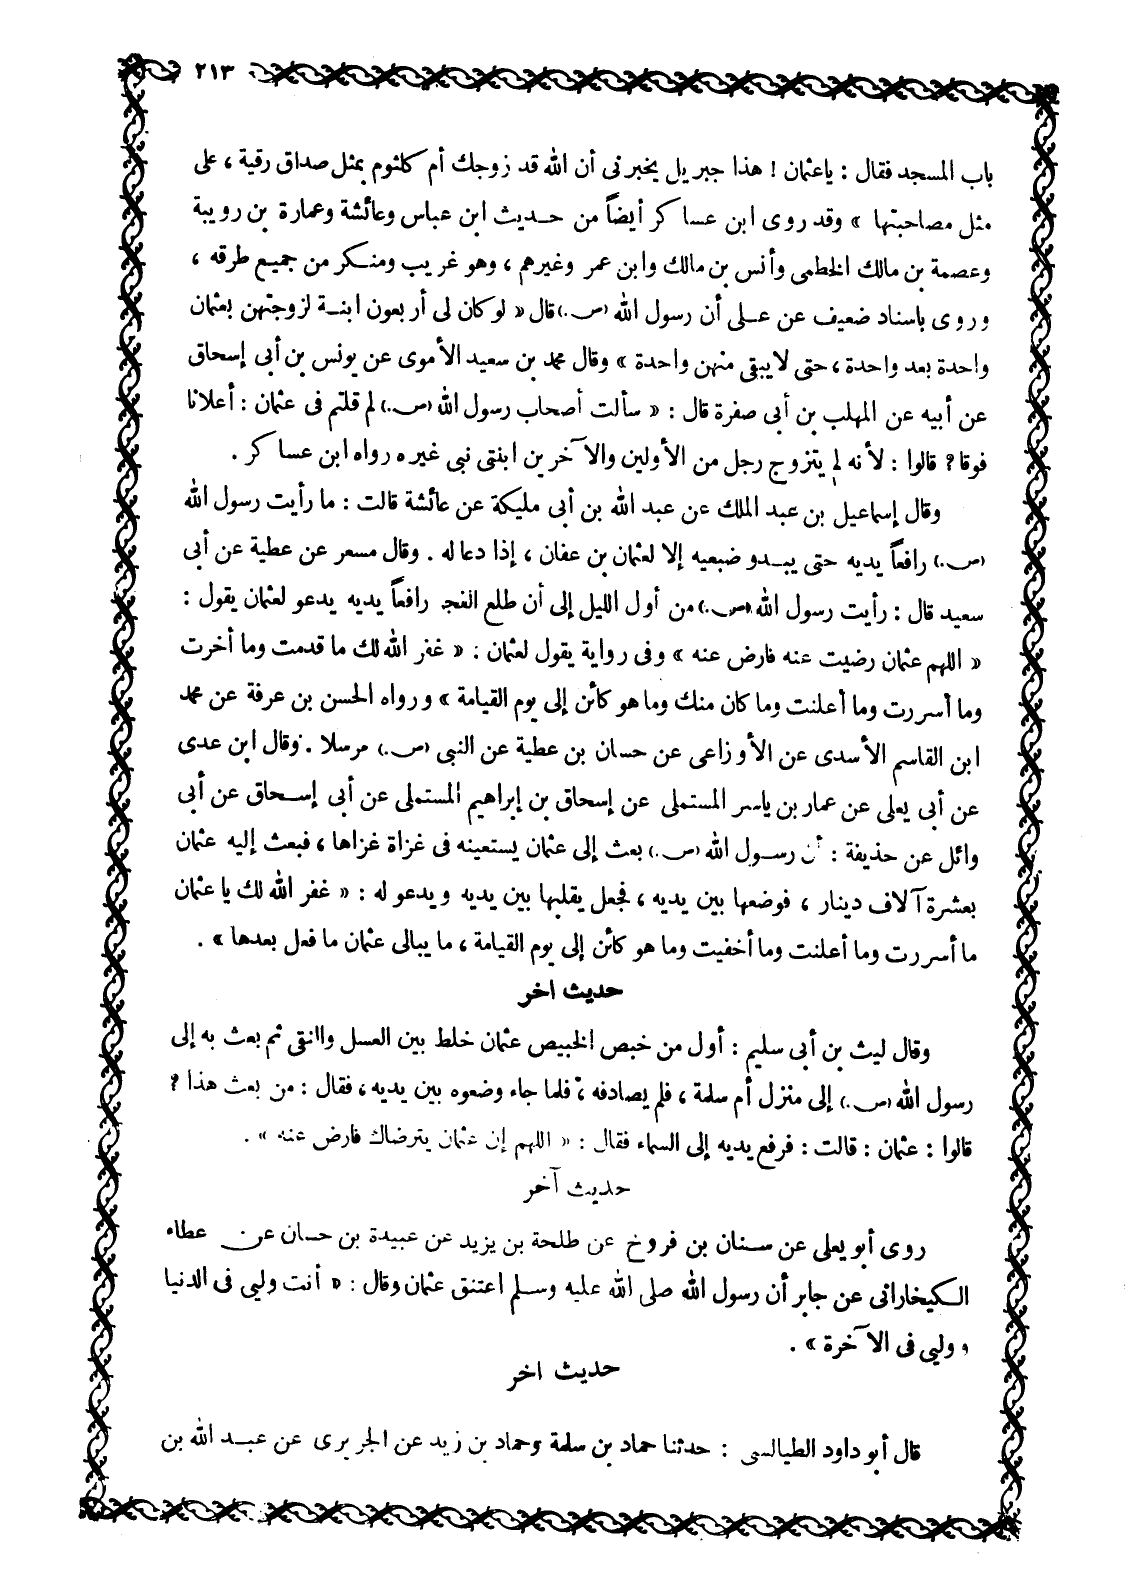 ٢١٣
باب المسجد فقال : ياعثمان ! هذا جبريل يخبرنى أن الله قد زوجك أم كلثوم بمثل صداق رقية ، على
مثل مصاحبتها » وقد روى ابن عساكر أيضاً من حديث ابن عباس وعائشة وعمارة بن رويبة
وعصمة بن مالك الخطمى وأنس بن مالك وابن عمر وغيرهم ، وهو غريب ومنكر من جميع طرقه ،
وروى باسناد ضعيف عن على أن رسول الله (ص.) قال « لو كان لى أربعون ابنة لزوجتهن بعثمان
واحدة بعد واحدة ، حتى لا يبقى منهن واحدة » وقال محمد بن سعيد الأموى عن يونس بن أبى إسحاق
عن أبيه عن المهلب بن أبى صفرة قال : « سألت أصحاب رسول الله (ص.) لم قلتم فى عثمان : أعلانا
فوقا ? قالوا : لأنه لم يتزوج رجل من الأولين والآخرين ابنتى نبى غيره رواه ابن عساكر .
وقال إسماعيل بن عبد الملك عن عبد الله بن أبى مليكة عن عائشة قالت : ما رأيت رسول الله
(ص.) رافعاً يديه حتى يبدو ضبعيه إلا لعثمان بن عفان ، إذا دعا له . وقال مسعر عن عطية عن أبى
سعيد قال : رأيت رسول الله (ص.) من أول الليل إلى أن طلع الفجر رافعاً يديه يدعو لعثمان يقول :
« اللهم عثمان رضيت عنه فارض عنه » وفى رواية يقول لعثمان : « غفر الله لك ما قدمت وما أخرت
وما أسررت وما أعلنت وما كان منك وما هو كائن إلى يوم القيامة » ورواه الحسن بن عرفة عن محمد
ابن القاسم الأسدى عن الأوزاعى عن حسان بن عطية عن النبى (ص.) مرسلا . وقال ابن عدى
عن أبى يعلى عن عمار بن ياسر المستملى عن إسحاق بن إبراهيم المستملى عن أبى إسحاق عن أبى
وائل عن حذيفة : أن رسول الله (ص.) بعث إلى عثمان يستعينه فى غزاة غزاها ، فبعث إليه عثمان
بعشرة آلاف دينار ، فوضعها بين يديه ، فجعل يقلبها بين يديه ويدعو له : « غفر الله لك يا عثمان
ما أسررت وما أعلنت وما أخفيت وما هو كائن إلى يوم القيامة ، ما يبالى عثمان ما فعل بعدها » .
حديث اخر
وقال ليث بن أبى سليم : أول من خبص الخبيص عثمان خلط بين العسل والنقى ثم بعث به إلى
رسول الله (ص.) إلى منزل أم سلمة ، فلم يصادفه ، فلما جاء وضعوه بين يديه ، فقال : من بعث هذا ?
قالوا : عثمان : قالت : فرفع يديه إلى السماء فقال : « اللهم إن عثمان يترضاك فارض عنه » .
حديث آخر
روى أبو يعلى عن سنان بن فروخ عن طلحة بن يزيد عن عبيدة بن حسان عن عطاء
الكيخارانى عن جابر أن رسول الله صلى الله عليه وسلم اعتنق عثمان وقال : « أنت وليى فى الدنيا
ووليى فى الآخرة » .
حديث اخر
قال أبو داود الطيالسى : حدثنا حماد بن سلمة وحماد بن زيد عن الجريرى عن عبد الله بن